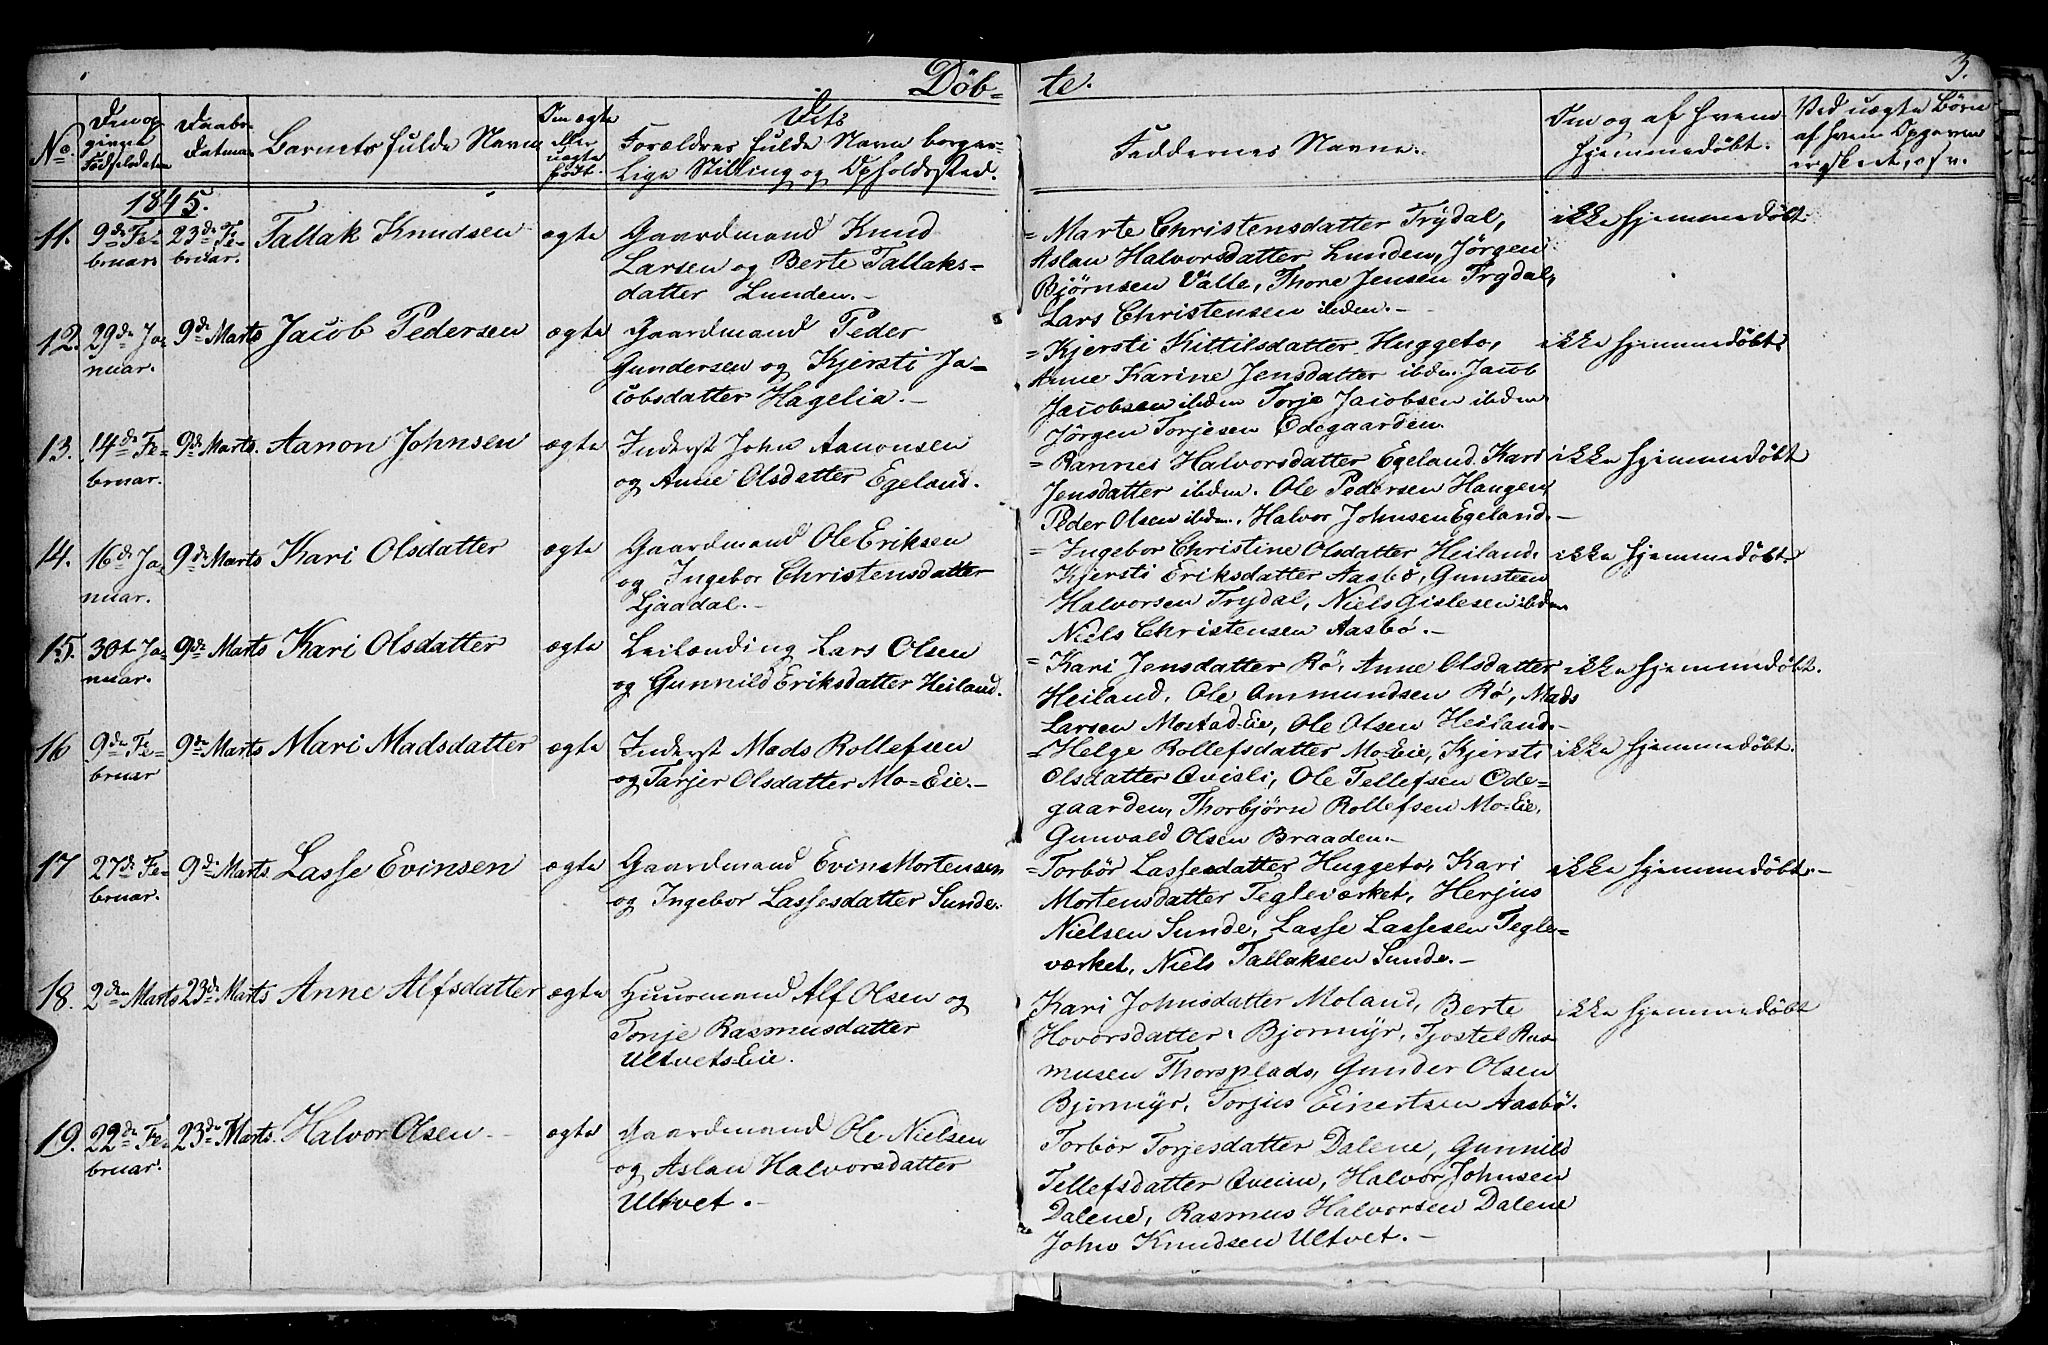 Döb- te. 3.
No. Den op givne Fødselsdatum Daabs- datum Barnets fulde Navn Om ægte eller uægte født. Dets Forældres fulde Navn borger- lige Stilling og Opholdssted. Faddernes Navne. Om og af hvem hjemmedöbt. Ved uægte Börn af hvem Opgaven er skeet, osv.
1845.
11. 9de Fe- bruar 23de Fe- bruar. Tallak Knudsen ægte
Gaardmand Knud
Larsen og Berte Tallaks-
datter Lunden.-
= Marte Christensdatter Trydal,
Aslau Halvorsdatter Lunden, Jörgen
Björnsen Valle, Thore Jensen Trydal,
Lars Christensen ibidem.-
ikke hjemmedöbt
12. 29de Ja- nuar. 9de Marts Jacob Pedersen ægte
Gaardmand Peder
Gundersen og Kjersti Ja-
cobsdatter Hagelia.-
= Kjersti Kittilsdatter Huggeto,
Anne Karine Jensdatter ibdm. Jacob
Jacobsen ibdm Torje Jacobsen ibdm
Jörgen Torjesen Ödegaarden
ikke hjemmedöbt
13. 14de Fe- bruar. 9de Marts. Aanon Johnsen ægte
Inderst John Aanonsen
og Anne Olsdatter Egeland.
= Rannei Halvorsdatter Egeland. Kari
Jensdatter ibdm. Ole Pedersen Haugen,
Peder Olsen ibdm. Halvor Johnsen Egeland.-
ikke hjemmedöbt
14. 16de Ja- nuar. 9de Marts Kari Olsdatter ægte
Gaardmand Ole Eriksen
og Ingebor Christensdatter
Ljaadal.-
= Ingebor Christine Olsdatter Heiland.
Kjersti Eriksdatter Aasbö, Gunsteen
Halvorsen Trydal, Niels Gislesen ibdm
Niels Christensen Aasbö.-
ikke hjemmedöbt.
15. 30t Ja- nuar. 9de Marts Kari Olsdatter ægte
Leilænding Lars Olsen
og Gunnild Eriksdatter Heiland.
= Kari Jensdatter Rö, Anne Olsdatter
Heiland, Ole Ommundsen Rö, Mads
Larsen Mostad-Eie, Ole Olsen Heiland.-
ikke hjemmedöbt.
16 9de Fe- bruar 9de Marts Mari Madsdatter ægte
Inderst Mads Rollefsen
og Tarjer Olsdatter Mo-Eie.-
= Helge Rollefsdatter Mo-Eie, Kjersti
Olsdatter Qvisli, Ole Tellefsen Öde-
gaarden, Thorbjörn Rollefsen Mo-Eie,
Gunvald Olsen Braaden.-
ikke hjemmedöbt.
17 27de Fe- bruar. 9de Marts Lasse Evinsen ægte
Gaardmand Evin Mortensen
og Ingebor Lassesdatter Sunde.
= Torbör Lassesdatter Huggeto, Kari
Mortensdatter Tegleværket, Herjus
Nielsen Sunde, Lasse Lassesen Tegle-
værket, Niels Tallaksen Sunde.-
ikke hjemmedöbt.-
18. 2den Marts 23de Marts Anne Alfsdatter ægte
Huusmand Alf Olsen og
Tonje Rasmusdatter
Ultvets-Eie.
Kari Johnsdatter Moland, Berte
Hovorsdatter, Bjormyr, Tjostel Ras-
musen Thorsplads, Gunder Olsen
Bjormyr, Torjus Einertsen Aasbö.
ikke hjemmedöbt
19. 22de Fe- bruar. 23de Marts. Halvor Olsen ægte
Gaardmand Ole Nielsen
og Aslau Halvorsdatter
Ultvet.-
Torbör Torjesdatter Dalene, Gunnild
Tellefsdatter Qveim, Halvor Johnsen
Dalene, Rasmus Halvorsen Dalene
John Knudsen Ultvet.-